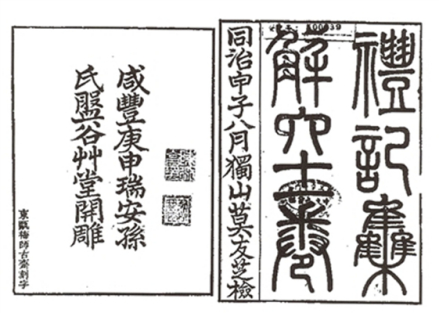 禮記集
解六十一卷
同治甲子八月獨山莫友芝檢
咸豐庚申瑞安孫
氏盤谷艸堂開雕
東甌梅師古齋刻字